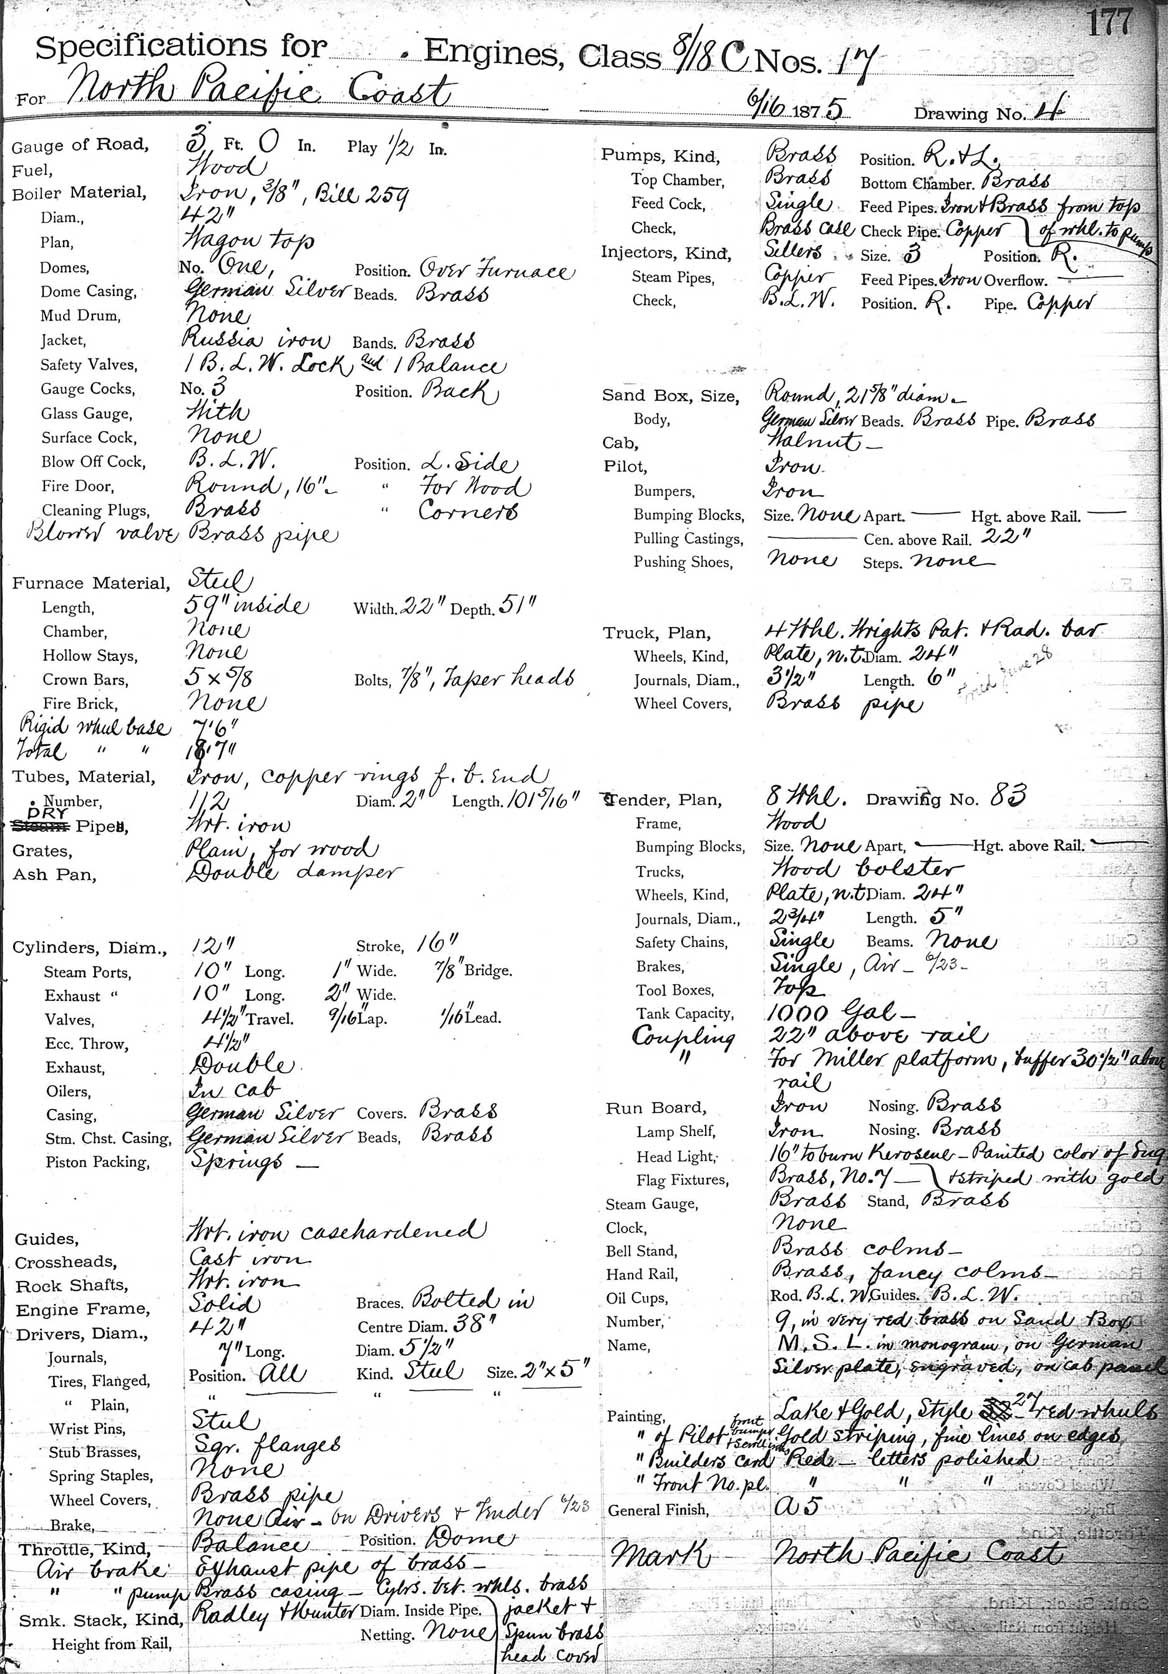 177
Specifications for . Engines, Class 8/18 C Nos. 17
For North Pacific Coast 6/16 1875 Drawing No. 4
Gauge of Road, 3 Ft. 0 In. Play 1/2 In.
Fuel, Wood
Boiler Material, Iron, 3/8", Bill 259
Diam., 42"
Plan, Wagon top
Domes, No. One, Position. Over Furnace
Dome Casing, German Silver Beads. Brass
Mud Drum, None
Jacket, Russia iron Bands. Brass
Safety Valves, 1 B. L. W. Lock and 1 Balance
Gauge Cocks, No. 3 Position. Back
Glass Gauge, With
Surface Cock, None
Blow Off Cock, B. L. W. Position. L. Side
Fire Door, Round, 16" " For Wood
Cleaning Plugs, Brass " Corners
Blower valve Brass pipe
Furnace Material, Steel
Length, 59" inside Width. 22" Depth. 51"
Chamber, None
Hollow Stays, None
Crown Bars, 5 x 5/8 Bolts, 7/8", Taper heads
Fire Brick, None
Rigid wheel base 7'6"
Total " " 18'7"
Tubes, Material, Iron, copper rings f. b. End
Number, 112 Diam. 2" Length. 101 5/16"
DRY
Steam Pipes, Wrt. iron
Grates, Plain, for wood
Ash Pan, Double damper
Cylinders, Diam., 12" Stroke, 16"
Steam Ports, 10" Long. 1" Wide. 7/8" Bridge.
Exhaust " 10" Long. 2" Wide.
Valves, 4 1/2" Travel. 9/16" Lap. 1/16" Lead.
Ecc. Throw, 4 1/2"
Exhaust, Double
Oilers, In cab
Casing, German Silver Covers. Brass
Stm. Chst. Casing, German Silver Beads, Brass
Piston Packing, Springs —
Guides, Wrt. iron casehardened
Crossheads, Cast iron
Rock Shafts, Wrt. iron
Engine Frame, Solid Braces. Bolted in
Drivers, Diam., 42" Centre Diam. 38"
Journals, 7" Long. Diam. 5 1/2"
Tires, Flanged, Position. All Kind. Steel Size. 2" x 5"
" Plain, " " "
Wrist Pins, Steel
Stub Brasses, Sqr. flanges
Spring Staples, None
Wheel Covers, Brass pipe
Brake, None Air — on Drivers & Tender 6/23
Throttle, Kind, Balance Position. Dome
Air brake Exhaust pipe of brass —
" " pump Brass casing — Cylrs. bet. whls. brass
Smk. Stack, Kind, Radley & Hunter Diam. Inside Pipe. jacket &
Height from Rail, Netting. None Spun brass
head cover
Pumps, Kind, Brass Position. R. & L.
Top Chamber, Brass Bottom Chamber. Brass
Feed Cock, Single Feed Pipes. Iron & Brass from top
Check, Brass case Check Pipe. Copper of whl. to pump
Injectors, Kind, Sellers Size. 3 Position. R.
Steam Pipes, Copper Feed Pipes. Iron Overflow. —
Check, B. L. W. Position. R. Pipe. Copper
Sand Box, Size, Round, 21 5/8" diam.
Body, German Silver Beads. Brass Pipe. Brass
Cab, Walnut —
Pilot, Iron
Bumpers, Iron
Bumping Blocks, Size. None Apart. — Hgt. above Rail. —
Pulling Castings, — Cen. above Rail. 22"
Pushing Shoes, None Steps. None
Truck, Plan, 4 Whl. Wrights Pat. & Rad. bar
Wheels, Kind, Plate, n.t. Diam. 24"
Journals, Diam., 3 1/2" Length. 6"
June 28
Wheel Covers, Brass pipe
Tender, Plan, 8 Whl. Drawing No. 83
Frame, Wood
Bumping Blocks, Size. None Apart, — Hgt. above Rail. —
Trucks, Wood bolster
Wheels, Kind, Plate, n.t. Diam. 24"
Journals, Diam., 2 3/4" Length. 5"
Safety Chains, Single Beams. None
Brakes, Single, Air — 6/23 —
Tool Boxes, Top
Tank Capacity, 1000 Gal —
Coupling 22" above rail
" For Miller platform, buffer 30 1/2" above
rail
Run Board, Iron Nosing. Brass
Lamp Shelf, Iron Nosing. Brass
Head Light, 16" to burn Kerosene — Painted color of Eng
Flag Fixtures, Brass, No. 7 — & striped with gold
Steam Gauge, Brass Stand, Brass
Clock, None
Bell Stand, Brass colms —
Hand Rail, Brass, fancy colms —
Oil Cups, Rod. B. L. W. Guides. B. L. W.
Number, 9, in very red brass on Sand Box
Name, M. S. L. in monogram, on German
Silver plate, engraved, on cab panel
Painting, Lake & Gold, Style 27 — red wheels
" of Pilot front bumper Gold striping, fine lines on edges
" Builders card Red — letters polished
" Front No. pl. " " "
General Finish, A 5
Mark North Pacific Coast